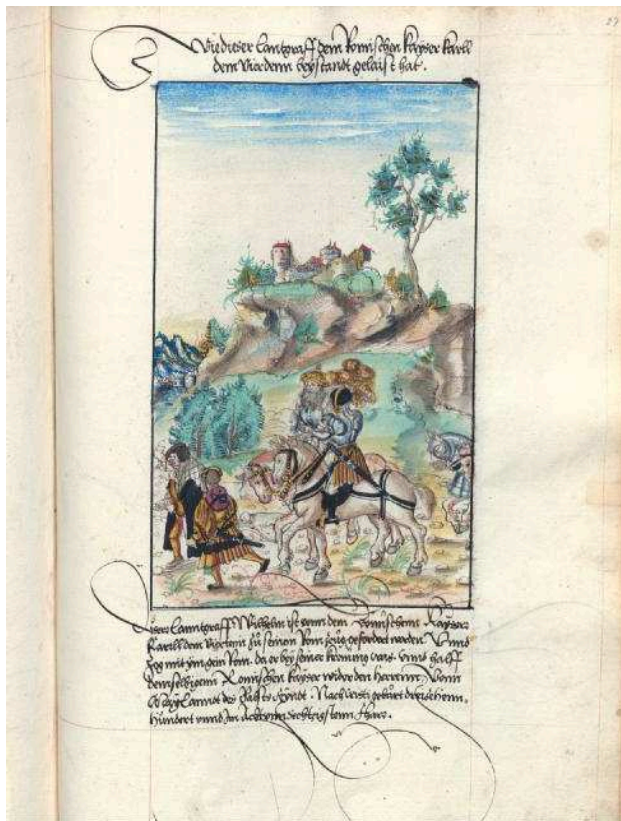 27
Wie dieser Lantgraff dem Romischen Kayser Karll
dem Vierdenn beystandt gelaist hat.
Diser Lanntgraff Wilhelm ist vonn dem Romischenn Kayser
Karll dem Viertenn zu seinem Rom zeug gefordert worden Vnnd
zog mit ym gein Rom. da er bey seiner kronung was. vnnd halff
demselbigenn Romischen kayser wider den Herrenn Vonn
Maylanndt des Pabsts Feyndt. Nach Cristi geburt dreizehenn
Hundert vnnd Im achtvnndsechtzigstenn Jhare.